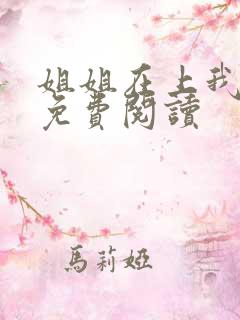 姐姐在上我
免費閱讀
馬莉婭